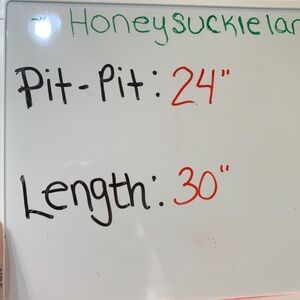 Honeysucklelar
Pit-Pit: 24"
Length: 30"